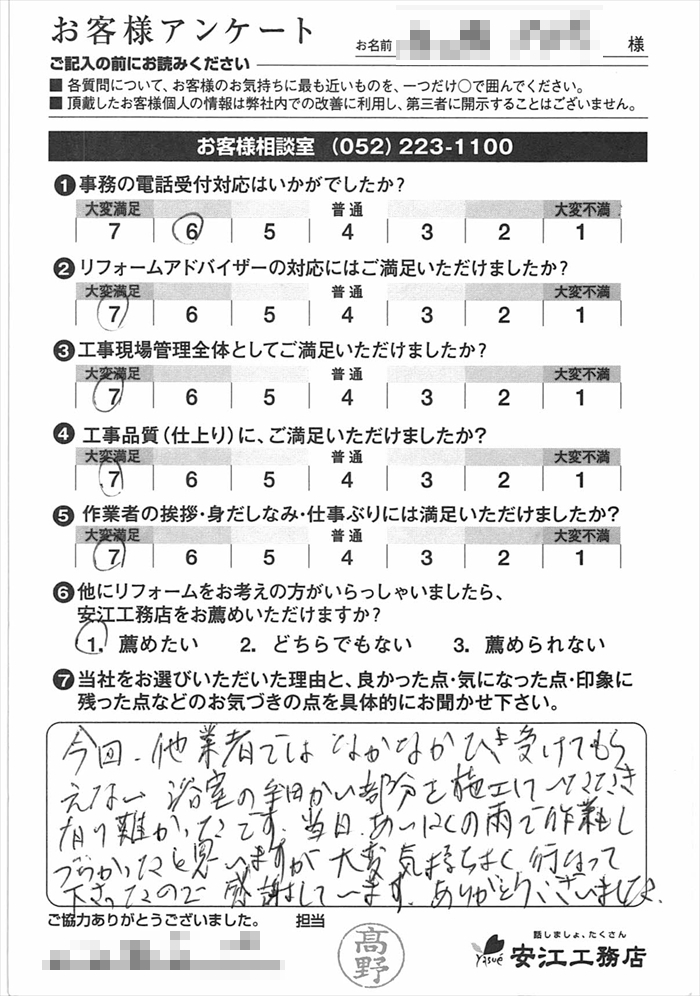 お客様アンケート
お名前 様
ご記入の前にお読みください
■ 各質問について、お客様のお気持ちに最も近いものを、一つだけ○で囲んでください。
■ 頂戴したお客様個人の情報は弊社内での改善に利用し、第三者に開示することはございません。
お客様相談室 (052) 223-1100
❶事務の電話受付対応はいかがでしたか?
大変満足 普通 大変不満
7 6 5 4 3 2 1
❷リフォームアドバイザーの対応にはご満足いただけましたか?
大変満足 普通 大変不満
7 6 5 4 3 2 1
❸工事現場管理全体としてご満足いただけましたか?
大変満足 普通 大変不満
7 6 5 4 3 2 1
❹工事品質(仕上り)に、ご満足いただけましたか?
大変満足 普通 大変不満
7 6 5 4 3 2 1
❺作業者の挨拶・身だしなみ・仕事ぶりには満足いただけましたか?
大変満足 普通 大変不満
7 6 5 4 3 2 1
❻他にリフォームをお考えの方がいらっしゃいましたら、
安江工務店をお薦めいただけますか?
1. 薦めたい 2. どちらでもない 3. 薦められない
❼当社をお選びいただいた理由と、良かった点・気になった点・印象に
残った点などのお気づきの点を具体的にお聞かせ下さい。
今回、他業者ではなかなかひき受けてもら
えない浴室の細かい部分を施工していただき
有り難かったです。当日、あいにくの雨で作業も し
づらかったと思いますが大変気持ちよく行なって
下さったので感謝しています。ありがとうございました。
ご協力ありがとうございました。 担当
高野
話しましょ、たくさん
Yasue 安江工務店